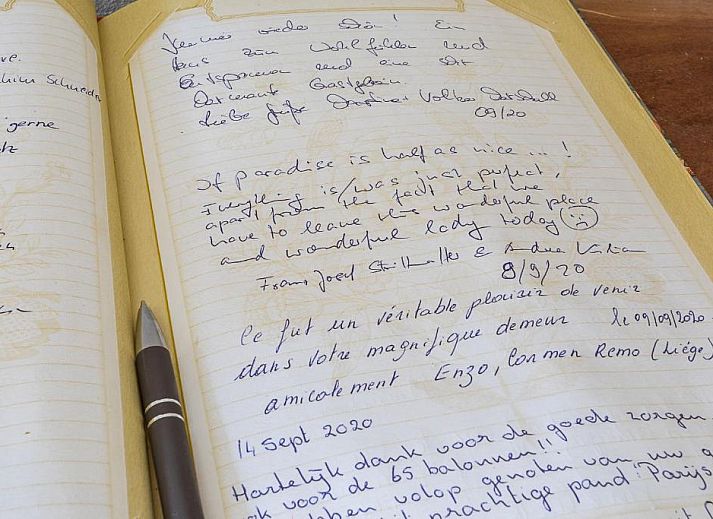 ve.
him Schneider
gerne
tz
Immer wieder schön! Ein
Haus zum Wohlfühlen und
Entspannen und eine sehr
charmante Gastgeberin.
Liebe Grüße Volker
09/20
If paradise is half as nice ... !
Everything is/was just perfect,
apart from the fact that we
have to leave this wonderful place
and wonderful lady today
Franz Josef & Andrea
8/9/20
Ce fut un véritable plaisir de venir
dans votre magnifique demeur le 09/09/2020
amicalement Enzo, Carmen Remo (Liége)
14 Sept 2020
Hartelijk dank voor de goede zorgen
ook voor de 65 balonnen!!
hebben volop genoten van uw
prachtige pand: Parijs